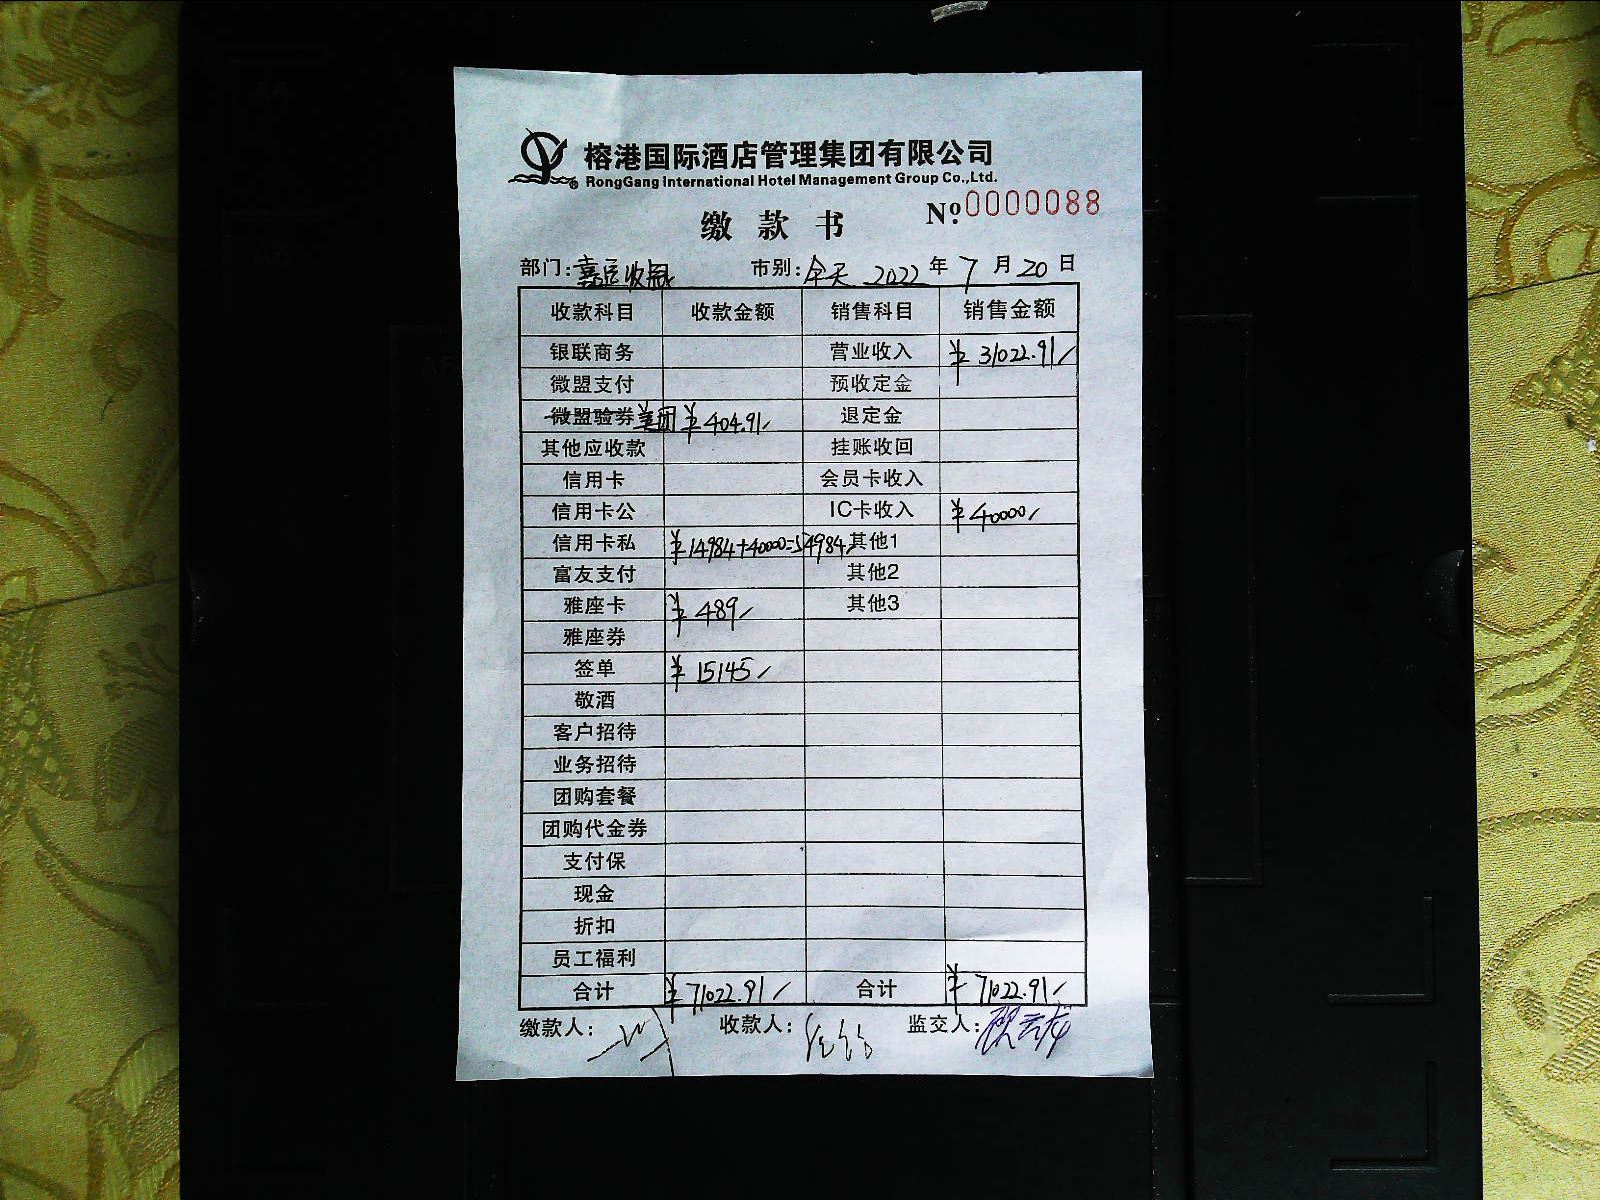 榕港国际酒店管理集团有限公司
RongGang International Hotel Management Group Co.,Ltd.
缴款书 Nº:0000088
部门:嘉运收银 市别:全天 2022年7月20日
收款科目 收款金额 销售科目 销售金额
银联商务 营业收入 ¥31022.91
微盟支付 预收定金
微盟验券 美团 ¥404.91 退定金
其他应收款 挂账收回
信用卡 会员卡收入
信用卡公 IC卡收入 ¥40000
信用卡私 ¥14984+40000=54984 其他1
富友支付 其他2
雅座卡 ¥489 其他3
雅座券
签单 ¥15145
敬酒
客户招待
业务招待
团购套餐
团购代金券
支付保
现金
折扣
员工福利
合计 ¥71022.91 合计 ¥71022.91
缴款人: 收款人: 监交人: